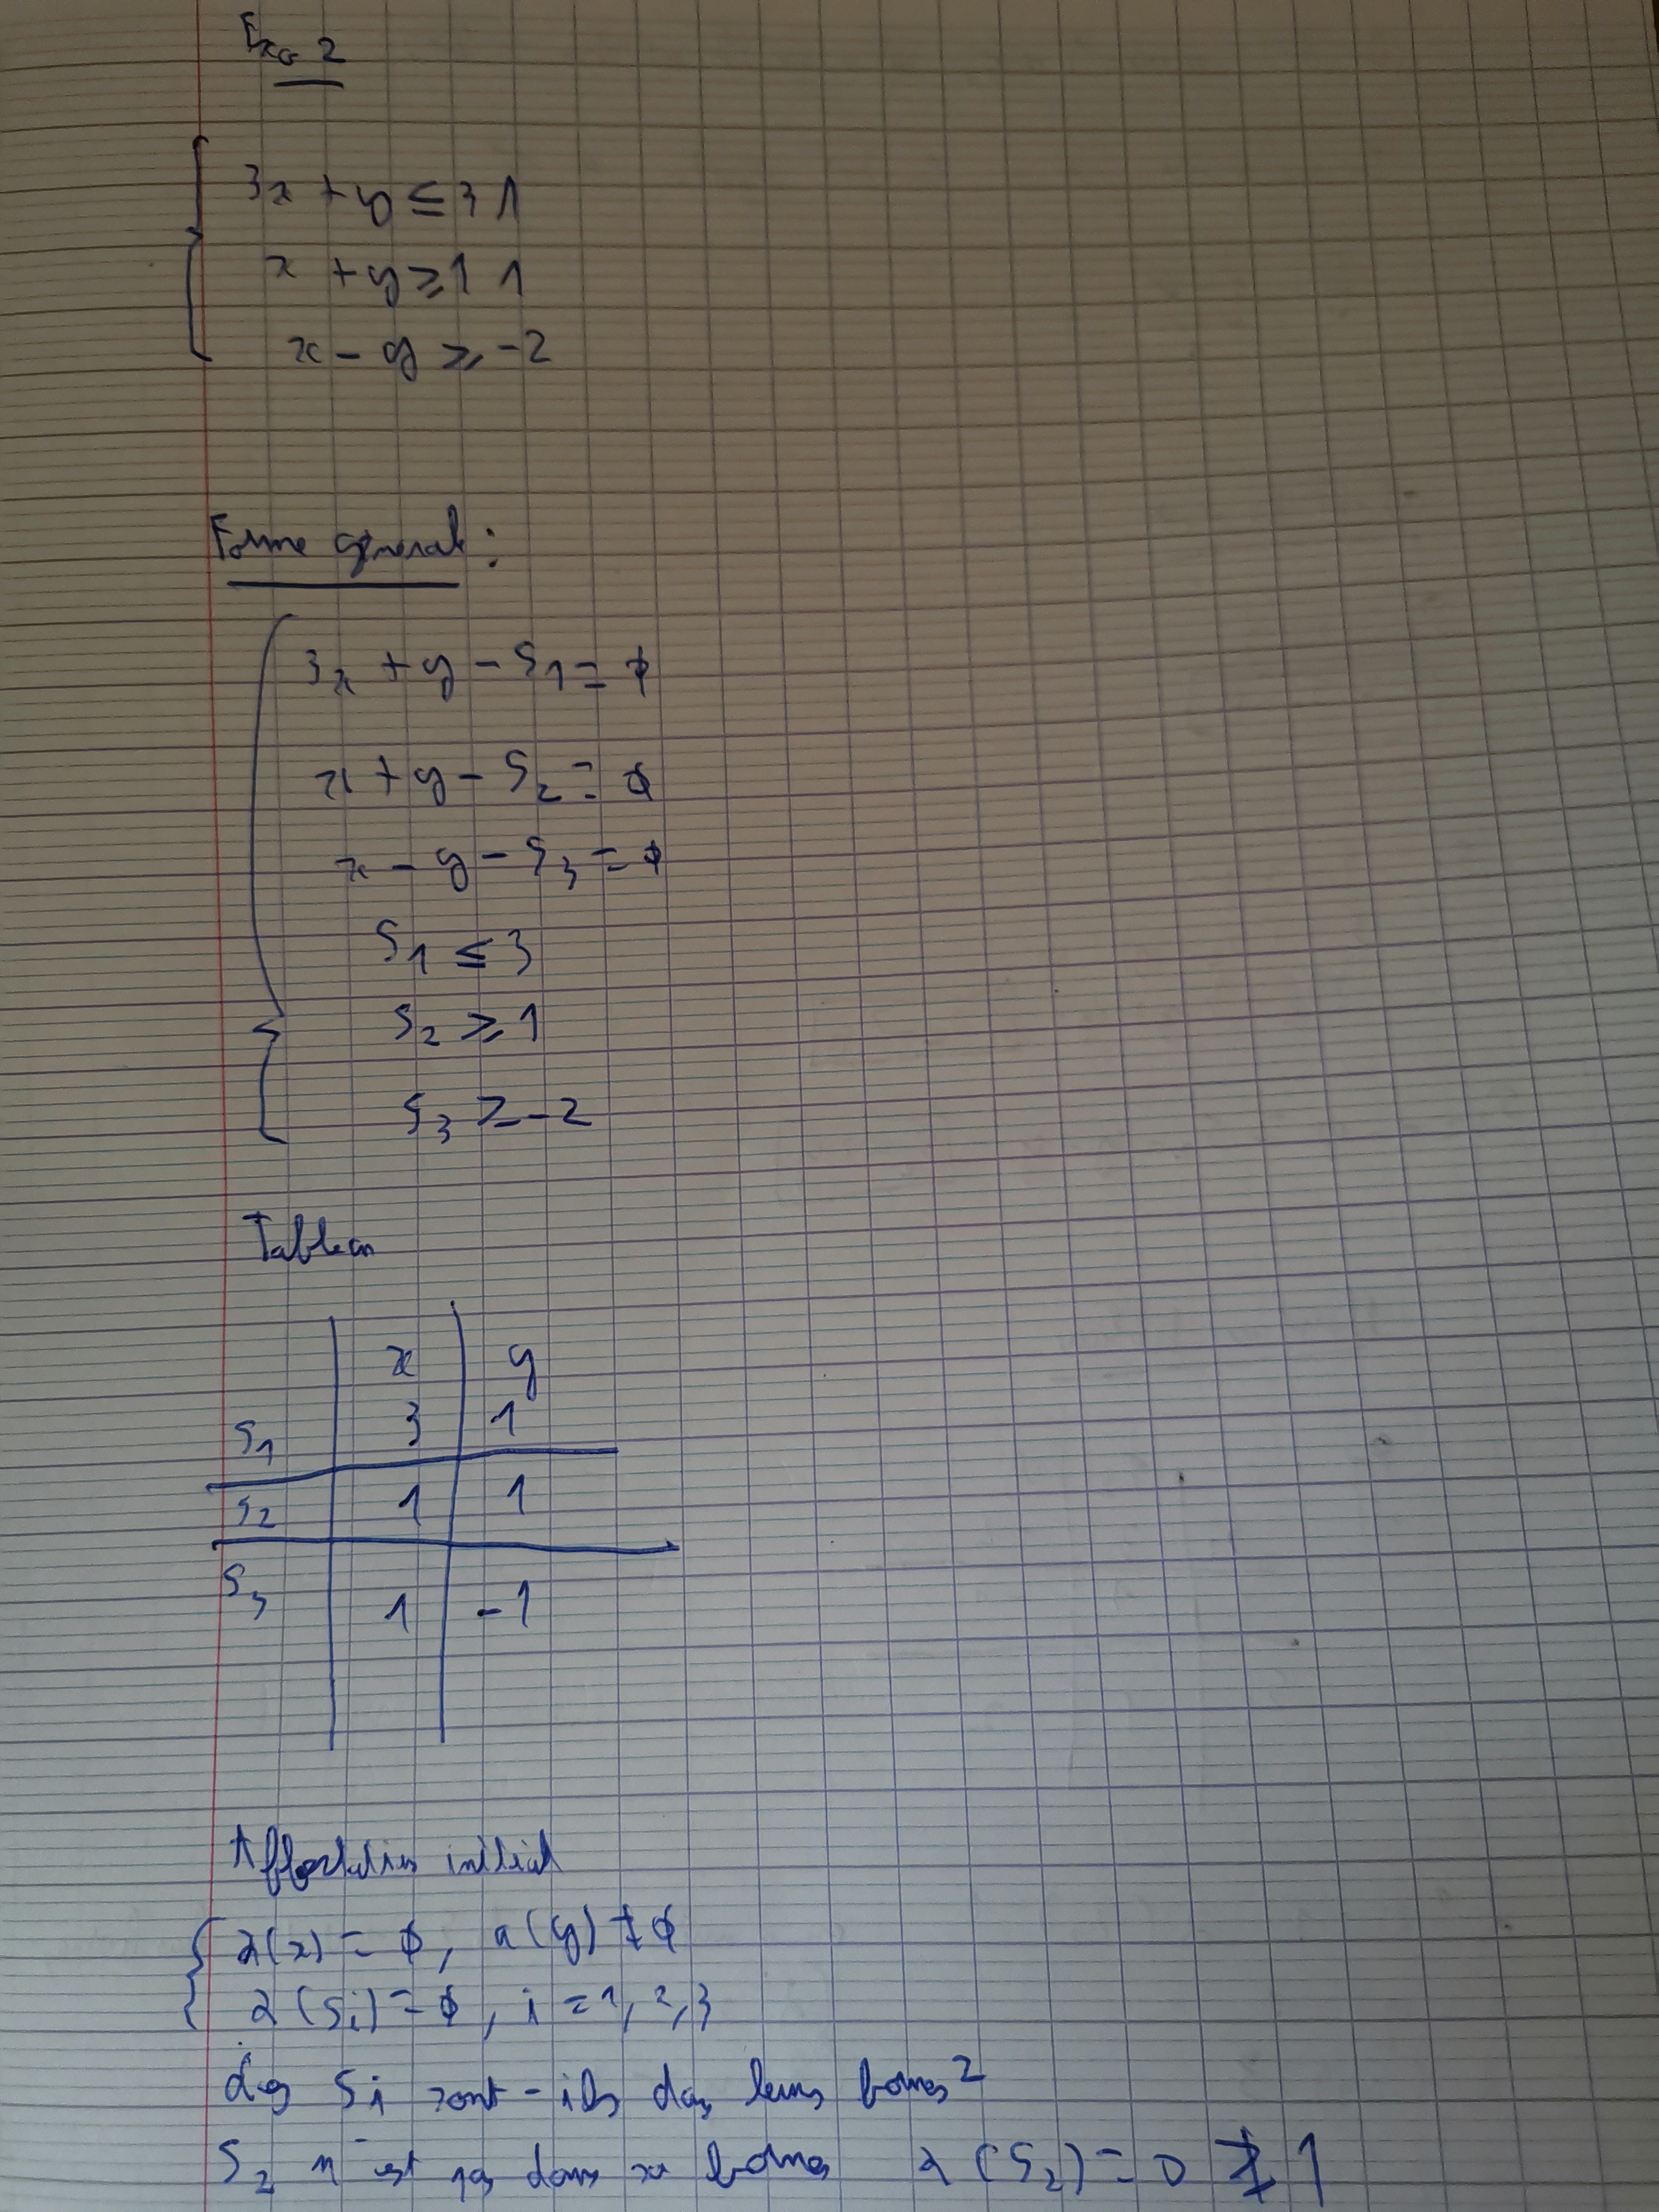 Exo 2
3x + y ≤ 3 1
x + y ≥ 1 1
x - y ≥ -2
Forme general :
3x + y - S1 = 0
x + y - S2 = 0
x - y - S3 = 0
S1 ≤ 3
S2 ≥ 1
S3 ≥ -2
Tableau
x y
S1 3 1
S2 1 1
S3 1 -1
Affectation initial
a(x) = 0, a(y) = 0
a(Si) = 0, i = 1, 2, 3
Les Si sont-ils dans leurs bornes ?
S2 n'est pas dans ses bornes a(S2) = 0 ≱ 1